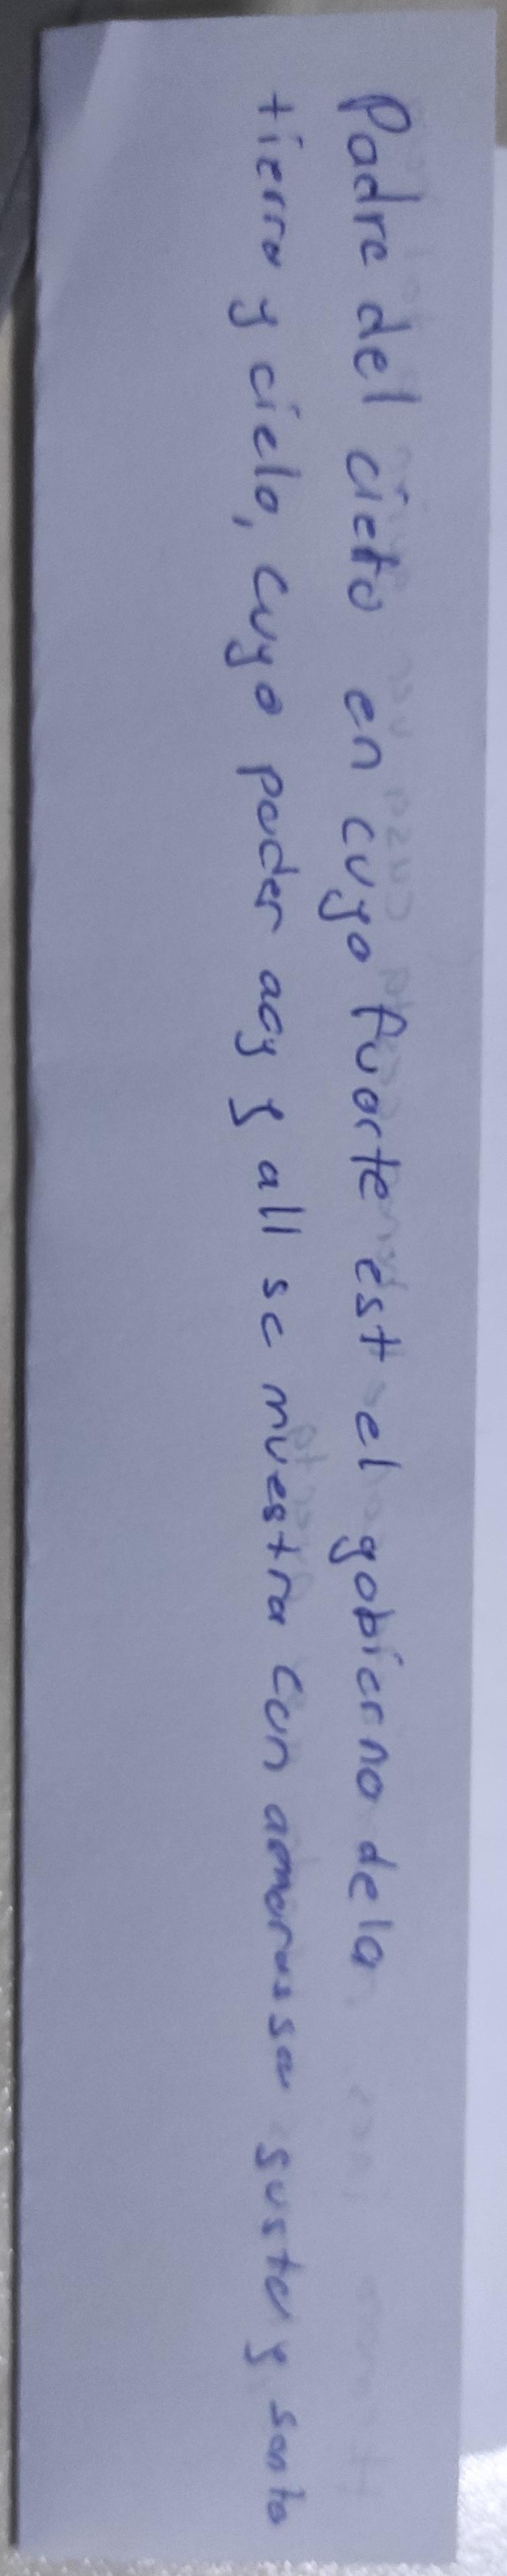 Padre del cielo en cuyo fuorte est el gobierno dela
tierra y cielo, cuyo poder acy y all se muestra con amorossa suste y santo